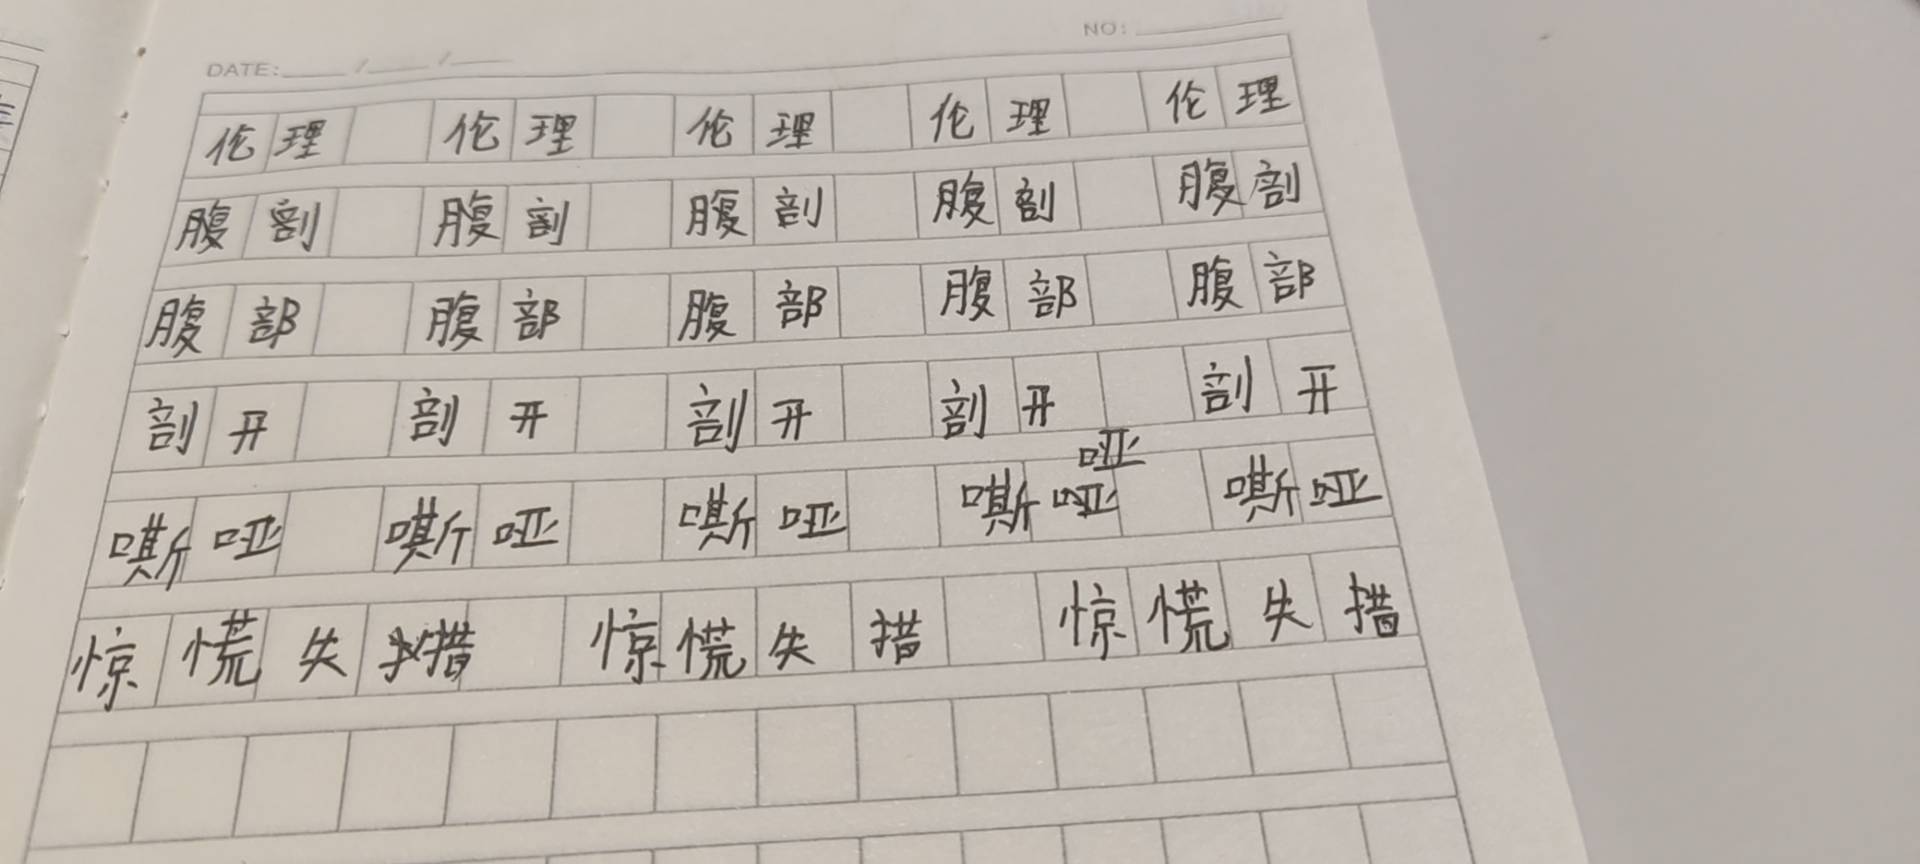 DATE: / / NO:
伦理 伦理 伦理 伦理 伦理
腹剖 腹剖 腹剖 腹剖 腹剖
腹部 腹部 腹部 腹部 腹部
剖开 剖开 剖开 剖开 剖开
哑
嘶哑 嘶哑 嘶哑 嘶哑 嘶哑
惊慌失措 惊慌失措 惊慌失措